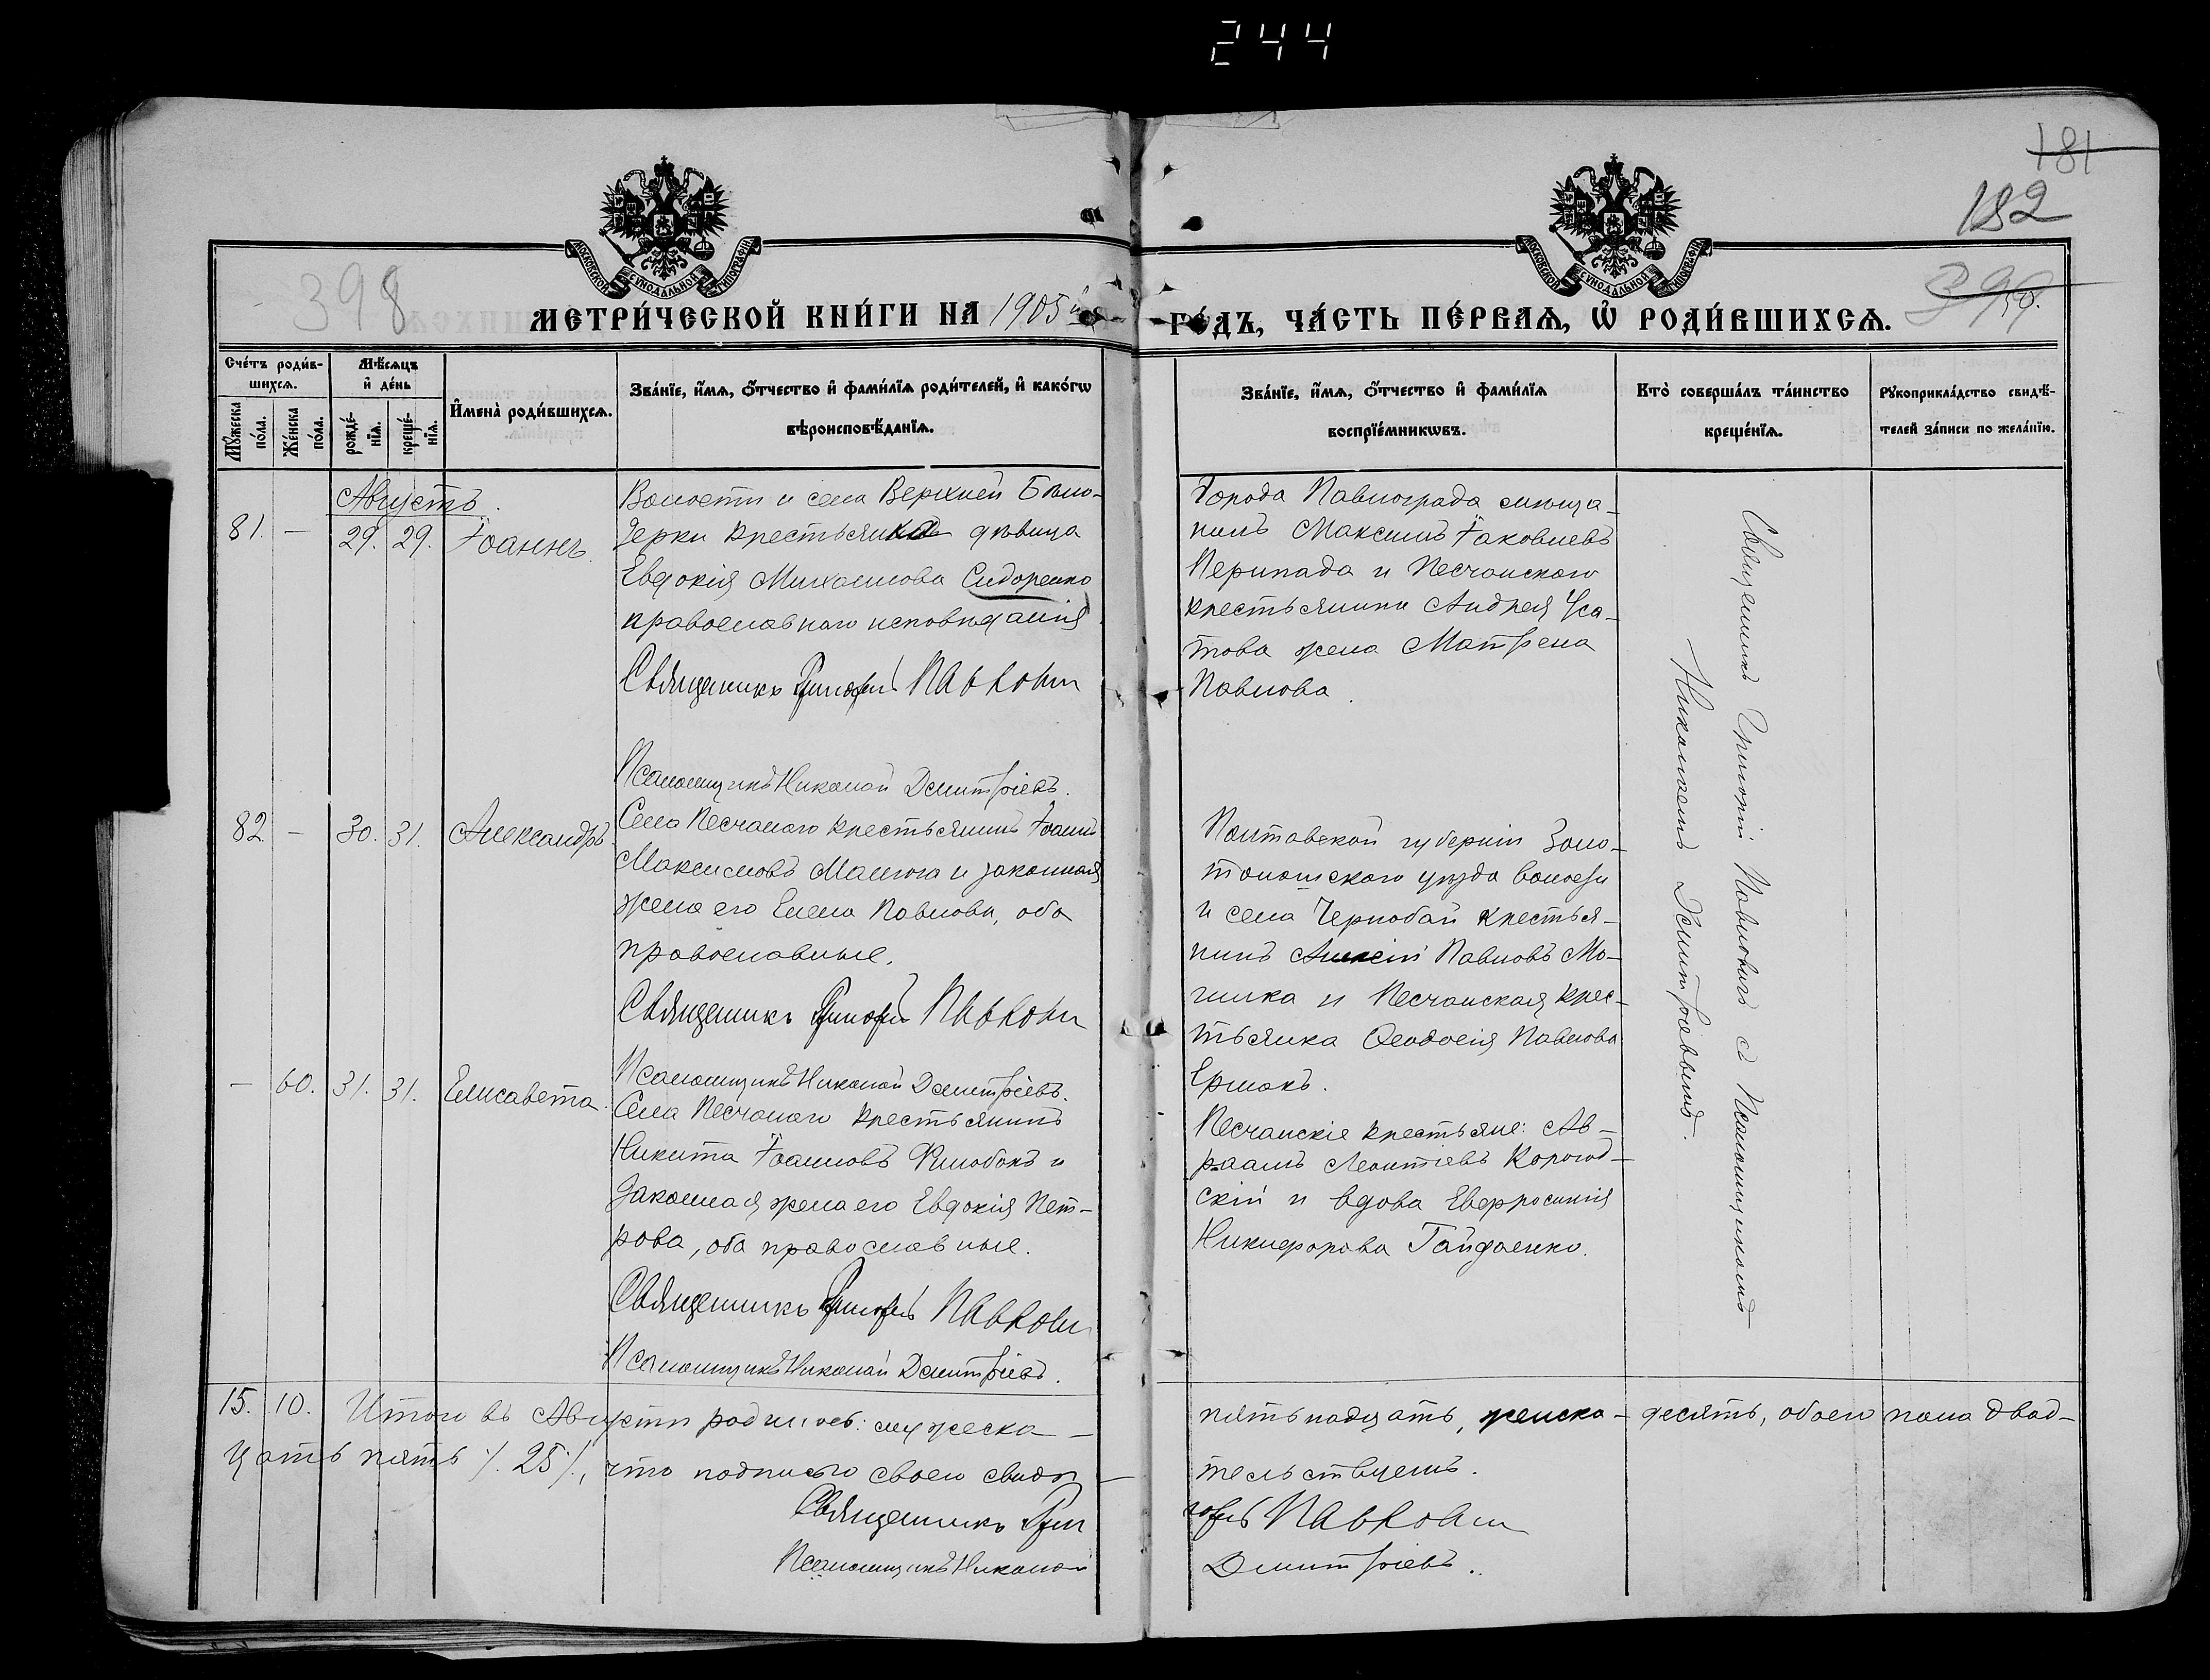 244
181
182
398
399
МОСКОВСКОЙ СѴНОДАЛЬНОЙ ТИПОГРАФІИ
МОСКОВСКОЙ СѴНОДАЛЬНОЙ ТИПОГРАФІИ
МЕТРИ́ЧЕСКОЙ КНИ́ГИ НА 1905й
ГО́ДЪ, ЧА́СТЬ ПЕ́РВАѦ, Ѽ РОДИ́ВШИХСѦ.
Сче́тъ роди́в-
шихсѧ.
Мꙋ́жеска по́ла.
Же́нска по́ла.
Мѣ́сѧцъ
и҆ де́нь
рожде́-
нїѧ.
креще́-
нїѧ.
И҆мена̀ роди́вшихсѧ.
Зва́нїе, и҆́мѧ, ѻ҆́тчество и҆ фами́лїѧ роди́телей, и҆ како́гѡ
вѣроисповѣ́данїѧ.
Зва́нїе, и҆́мѧ, ѻ҆́тчество и҆ фами́лїѧ
воспрїе́мникѡвъ.
Кто̀ соверша́лъ та́инство
креще́нїѧ.
Рꙋкоприкла́дство свидѣ́-
телей за́писи по жела́нїю.
Августъ.
81. — 29. 29. Іоаннъ.
Волости и села Верхней Бѣло-
зерки крестьянка дѣвица
Евдокія Михаилова Сидоренко
православнаго исповѣданія
Священникъ Григорій Павлович
Псаломщикъ Николай Дмитріевъ.
Города Павлограда мѣща-
нинъ Максимъ Іаковлевъ
Перипада и Песчанскаго
крестьянина Андрея Уса-
това жена Матрена
Павлова.
Священникъ Григорій Павловичъ съ Псаломщикомъ
Николаемъ Дмитріевымъ.
82 — 30. 31. Александръ
Села Песчанаго крестьянинъ Іоаннъ
Максимовъ Малюга и законная
жена его Елена Павлова, оба
православные.
Священникъ Григорій Павлович
Псаломщикъ Николай Дмитріевъ.
Полтавской губерніи Золо-
тоношского уѣзда волости
и села Чернобай крестья-
нинъ Алексій Павловъ Мо-
гилка и Песчанская крес-
тьянка Ѳеодосія Павлова
Ермакъ.
— 60. 31. 31. Елисавета.
Села Песчанаго крестьянинъ
Никита Іоанновъ и
законная жена его Евдокія Пет-
рова, оба православные.
Священникъ Григорій Павлович
Псаломщикъ Николай Дмитріевъ.
Песчанскіе крестьяне: Ав-
раамъ Леонтіевъ Корогод-
скій и вдова Евфросинія
Никифорова Гайдаенко.
15. 10. Итого въ Августѣ родилось: мужеска —
пятьнадцать, женска — десять, обоего пола двад-
цать пять /. 25 /., что подписью своею свидѣ —
тельствуемъ.
Священникъ Григорій Павлович
Псаломщикъ Николай
Дмитріевъ.